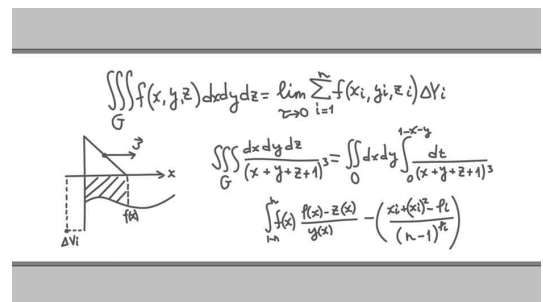 ∭_G f(x,y,z)dxdydz = lim_{τ→0} ∑_{i=1}^{n} f(xi,yi,zi)ΔVi
∭_G dxdydz/(x+y+z+1)³ = ∬_O dxdy ∫_0^{1-x-y} dt/(x+y+z+1)³
x
f(x)
ΔVi
f(x) (f(x)-z(x))/y(x) - ((xi+(xi)²-fi)/(n-1)^{fi})